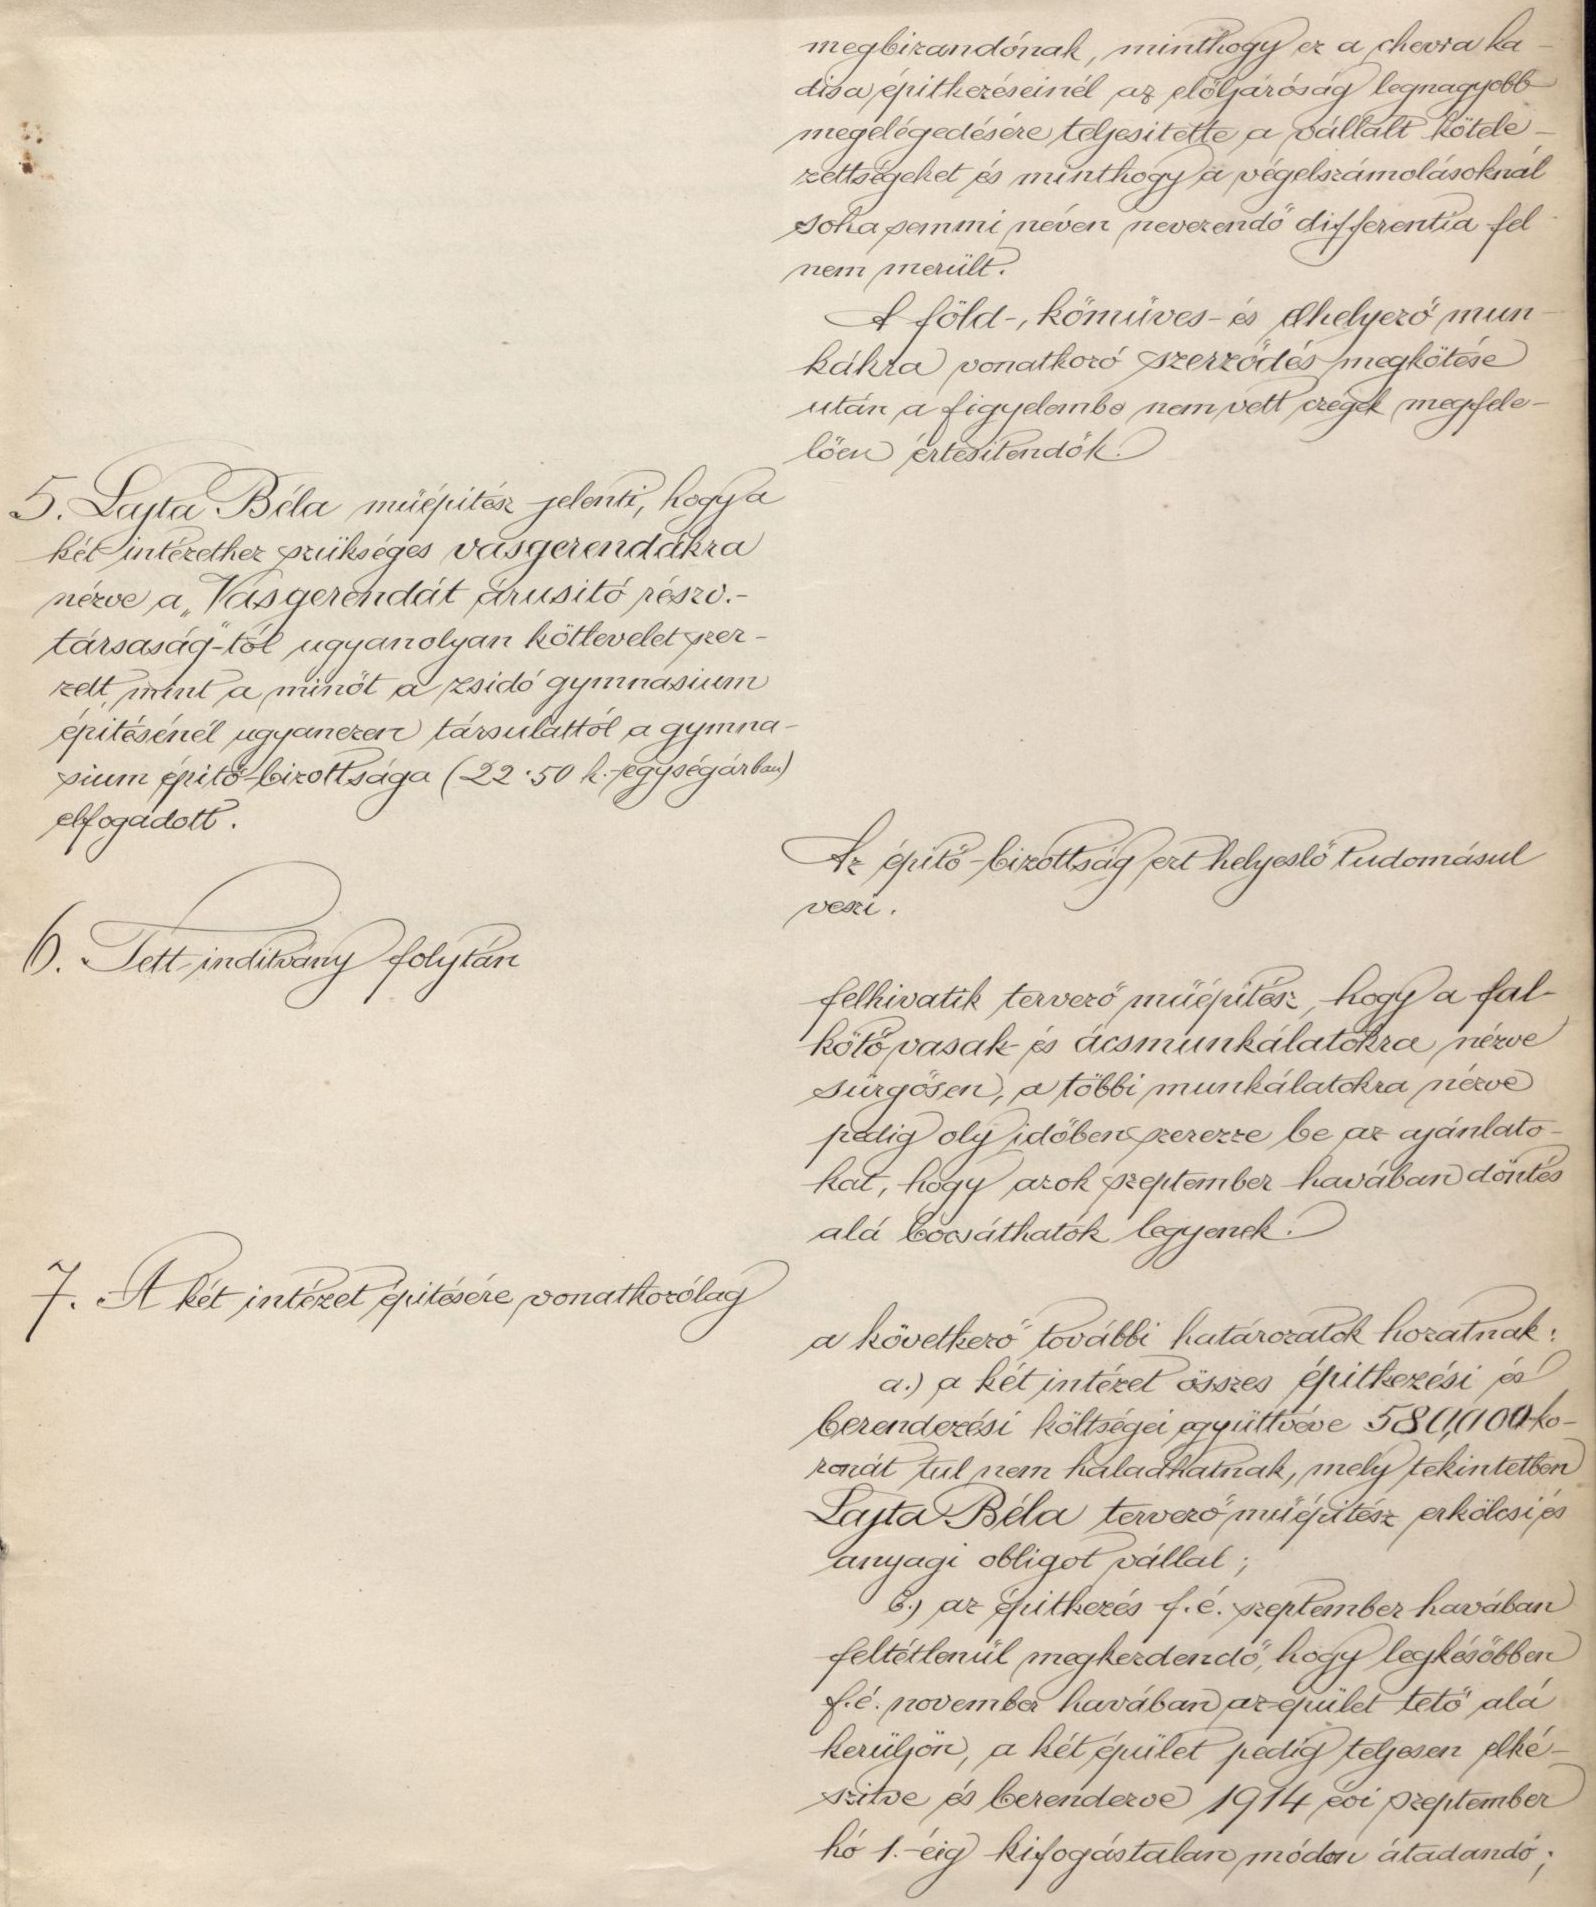 megbizandónak, minthogy ez a chevra ka-
disa épitkezéseinél az elöljáróság legnagyobb
megelégedésére teljesitette a vállalt kötele-
zettségeket és minthogy a végelszámolásoknál
soha semmi néven nevezendő differentia fel
nem merült.
A föld-, kőmüves- és elhelyező mun-
kákra vonatkozó szerződés megkötése
után a figyelembe nem vett czégek megfele-
lően értesitendők.
5. Lajta Béla müépitész jelenti, hogy a
két intézethez szükséges vasgerendákra
nézve a „Vasgerendát árusitó részv.-
társaság"-tól ugyanolyan kötlevelet szer-
zett, mint a minőt a zsidó gymnasium
épitésénél ugyanezen társulattól a gymna-
sium épitő-bizottsága (22·50 k.-egységárban)
elfogadott.
Az épitő-bizottság ezt helyeslő tudomásul
veszi.
6. Tett inditvány folytán
felhivatik tervező müépitész, hogy a fal-
kötő vasak- és ácsmunkálatokra nézve
sürgősen, a többi munkálatokra nézve
pedig oly időben szerezze be az ajánlato-
kat, hogy azok szeptember havában döntés
alá bocsáthatók legyenek.
7. A két intézet épitésére vonatkozólag
a következő további határozatok hozatnak:
a.) a két intézet összes épitkezési és
berendezési költségei együttvéve 580,000 ko-
ronát tul nem haladhatnak, mely tekintetben
Lajta Béla tervező müépitész erkölcsi és
anyagi obligot vállal;
b.) az épitkezés f. é. szeptember havában
feltétlenül megkezdendő, hogy legkésőbben
f. é. november havában az épület tető alá
kerüljön, a két épület pedig teljesen elké-
szitve és berendezve 1914 évi szeptember
hó 1.-éig kifogástalan módon átadandó;